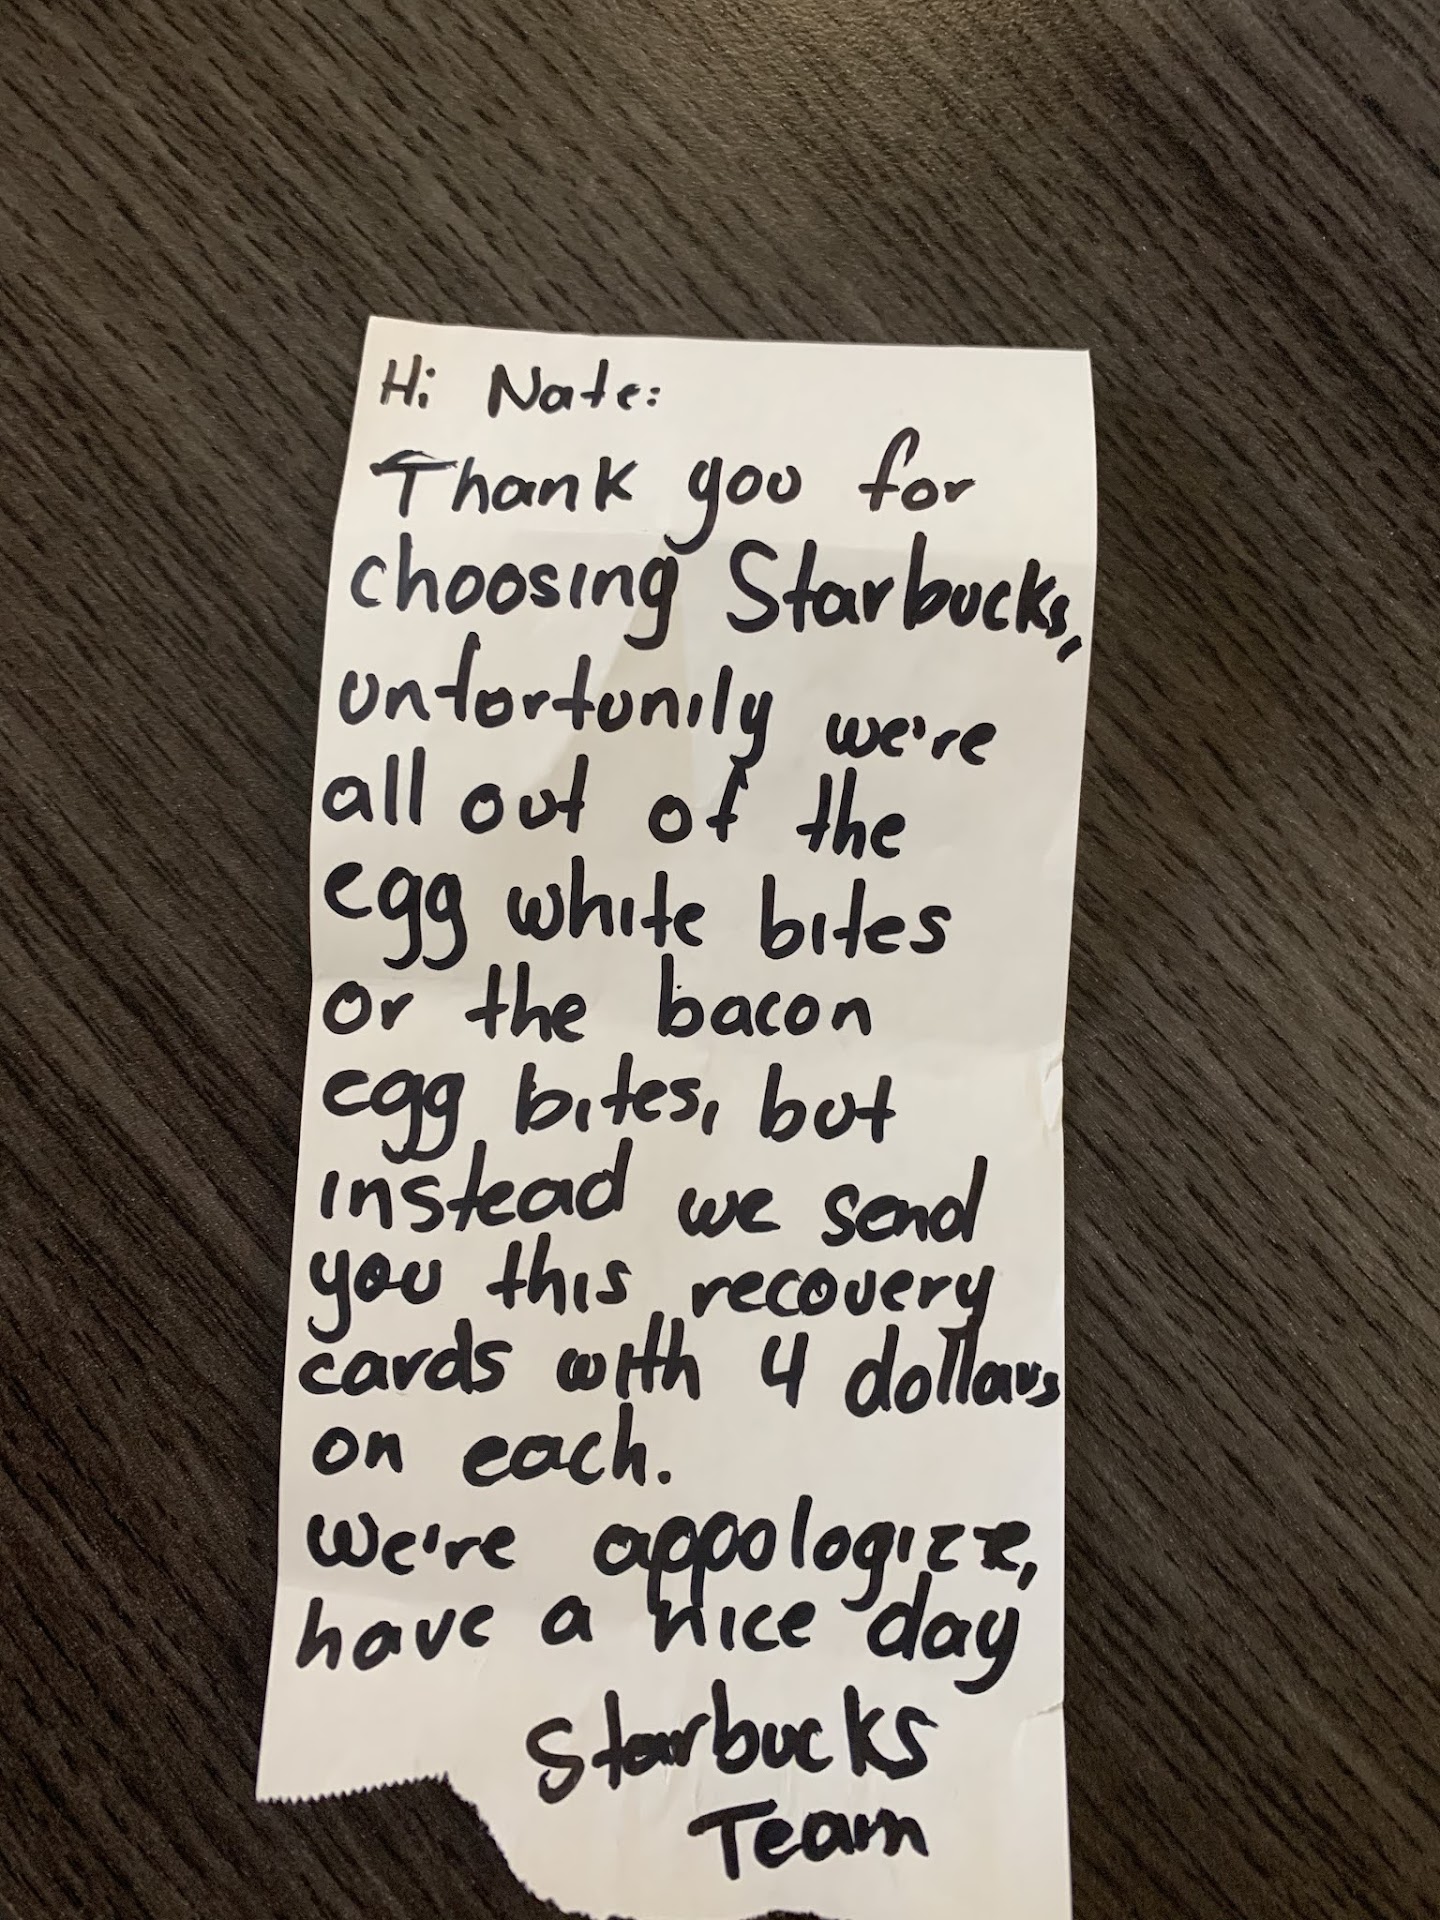 Hi Nate:
Thank you for
choosing Starbucks,
unfortunily we're
all out of the
egg white bites
or the bacon
egg bites, but
instead we send
you this recovery
cards with 4 dollars
on each.
We're appologize,
have a nice day
Starbucks
Team